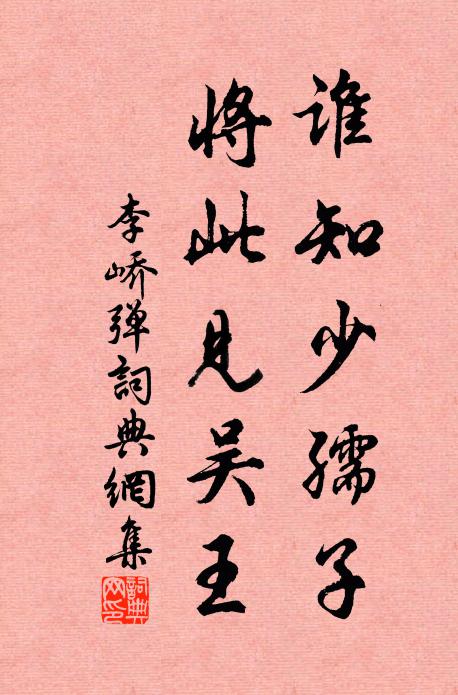 谁知少孺子
将此见吴王
李峤弹詞典網集
詞典網印